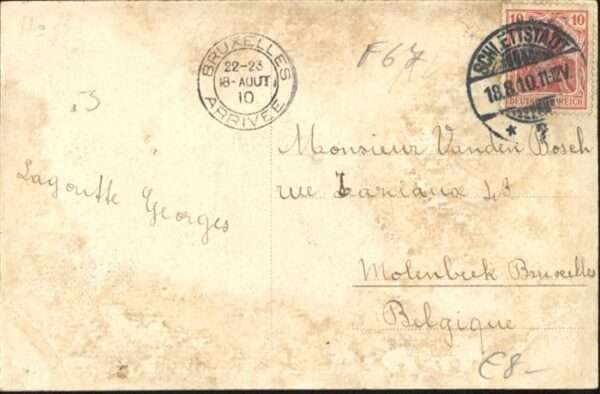 BRUXELLES
22-23
18-AOUT
10
ARRIVEE
F67
10 10
DEUTSCHES REICH
SCHLETTSTADT
18.8.10.11-12V
* 2
Lagoutte Georges
Monsieur Vanden Bosch
rue Zaniaux 43
Molenbeek Bruxelles
Belgique
€8-